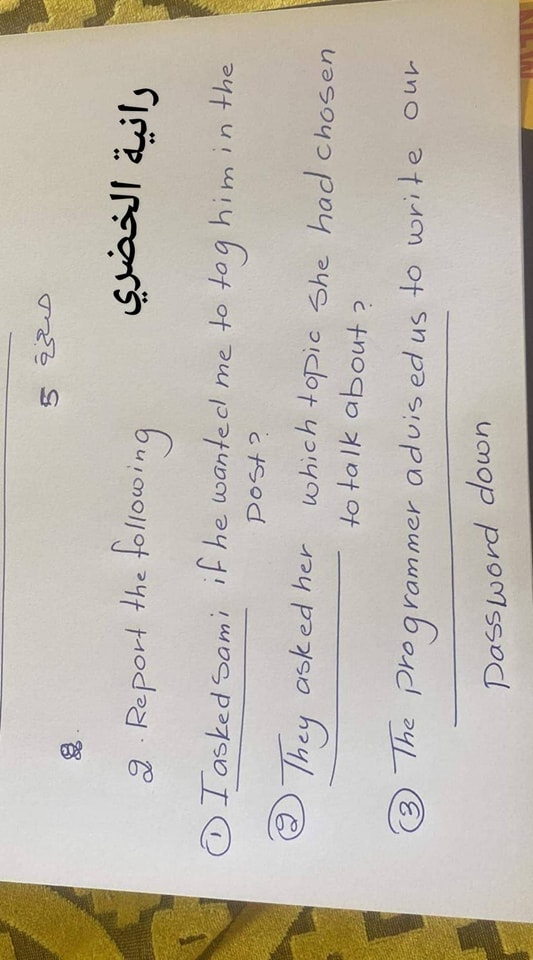 NEW
صفحة 5
8.
2. Report the following
رانية الخضري
① I asked Sami if he wanted me to tag him in the
post?
② They asked her which topic she had chosen
to talk about?
③ The programmer advised us to write our
password down